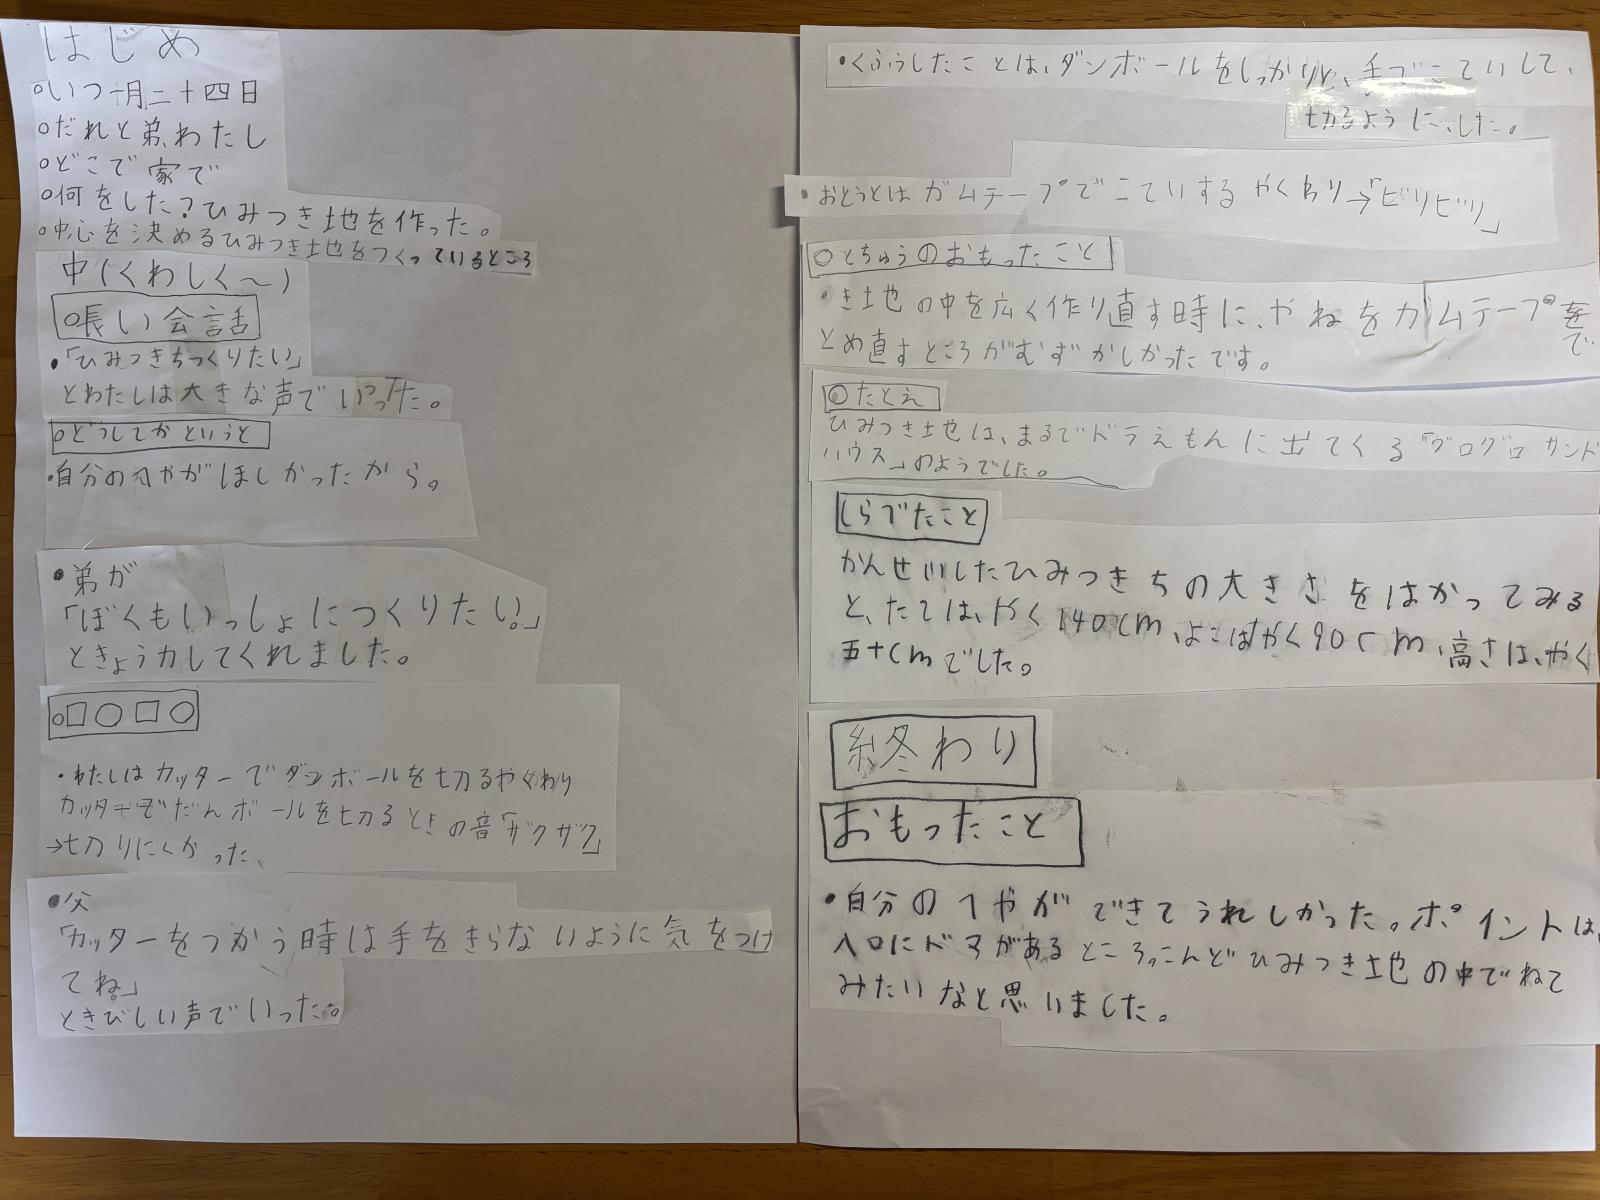 はじめ
○いつ一月二十四日
○だれと弟、わたし
○どこで家で
○何をした？ひみつき地を作った。
○中心を決めるひみつき土地をつくっているところ
中（くわしく～）
○長い会話
•「ひみつきちつくりたい」
とわたしは大きな声でいった。
○どうしてかというと
•自分のへやがほしかったから。
•弟が
「ぼくもいっしょにつくりたい。」
ときょう力してくれました。
○□○□○
・わたしはカッターでダンボールを切るやくわり
カッターでだんボールを切るときの音「ザクザク」
→切りにくかった、
•父
「カッターをつかう時は手をきらないように気をつけ
てね。」
ときびしい声でいった。
•くふうしたことは、ダンボールをしっかりと、手でこていして、
切るように、した。
•おとうとはガムテープでこていするやくわり→「ビリビリ」
○とちゅうのおもったこと
•き地の中を広く作り直す時に、やねをガムテープを
で
とめ直すところがむずかしかったです。
○たとえ
ひみつき土地は、まるでドラえもんに出てくる「グログロサンド
ハウス」のようでした。
しらべたこと
かんせいしたひみつきちの大きさをはかってみる
と、たては、やく140cm、よこはやく90cm、高さは、やく
五十cmでした。
終わり
おもったこと
•自分のへやができてうれしかった。ポイントは、
入口にドアがあるところ。こんどひみつき土地の中でねて
みたいなと思いました。